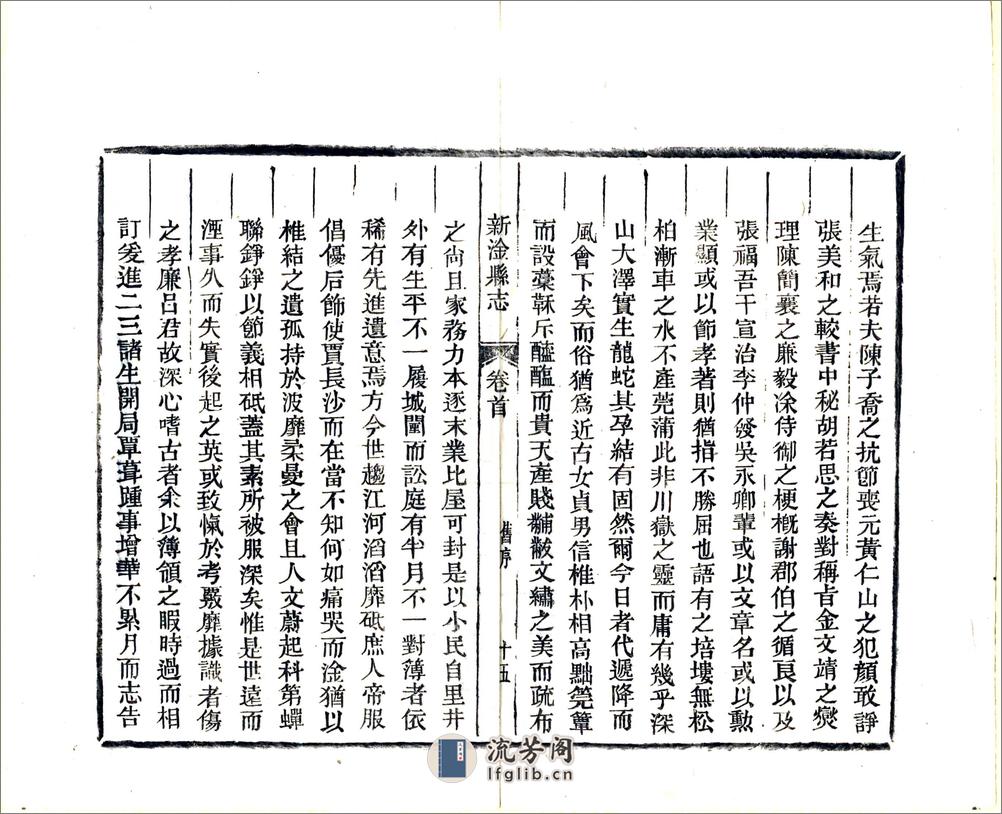 生氣焉若夫陳子喬之抗節喪元黃仁山之犯顏敢諍
張美和之較書中秘胡若思之奏對稱旨金文靖之燮
理陳簡襄之廉毅凃侍御之梗槪謝郡伯之循良以及
張福吾干宣治李仲發吳永卿輩或以文章名或以勲
業顯或以節孝著則猶指不勝屈也語有之培塿無松
柏漸車之水不產莞蒲此非川嶽之靈而庸有幾乎深
山大澤實生龍蛇其孕結有固然爾今日者代遞降而
風會下矣而俗猶爲近古女貞男信椎朴相高黜筦簟
而設藁鞂斥醯醢而貴天產賤黼黻文繡之美而疏布
新淦縣志
卷首
舊序
十五
之尙且家務力本逐末業比屋可封是以小民自里井
外有生平不一履城闉而訟庭有半月不一對簿者依
稀有先進遺意焉方今世趨江河滔滔靡砥庶人帝服
倡優后飾使賈長沙而在當不知何如痛哭而淦猶以
椎結之遺孤持於波靡柔曼之會且人文蔚起科第蟬
聯錚錚以節義相砥蓋其素所被服深矣惟是世遠而
湮事久而失實後起之英或致愾於考覈靡據識者傷
之孝廉呂君故深心嗜古者余以簿領之暇時過而相
訂爰進二三諸生開局覃葺踵事增華不累月而志告
流芳阁
lfglib.cn